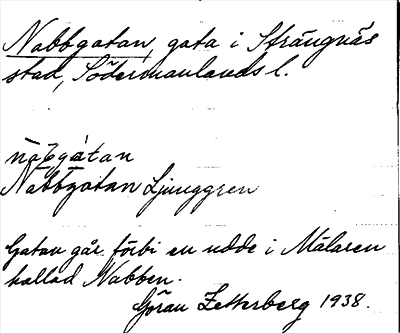 Nabbgatan, gata i Strängnäs
stad, Södermanlands l.
nàb̄gátan
Nabbgatan Ljunggren
Gatan går förbi en udde i Mälaren
kallad Nabben.
Göran Zetterberg 1938.